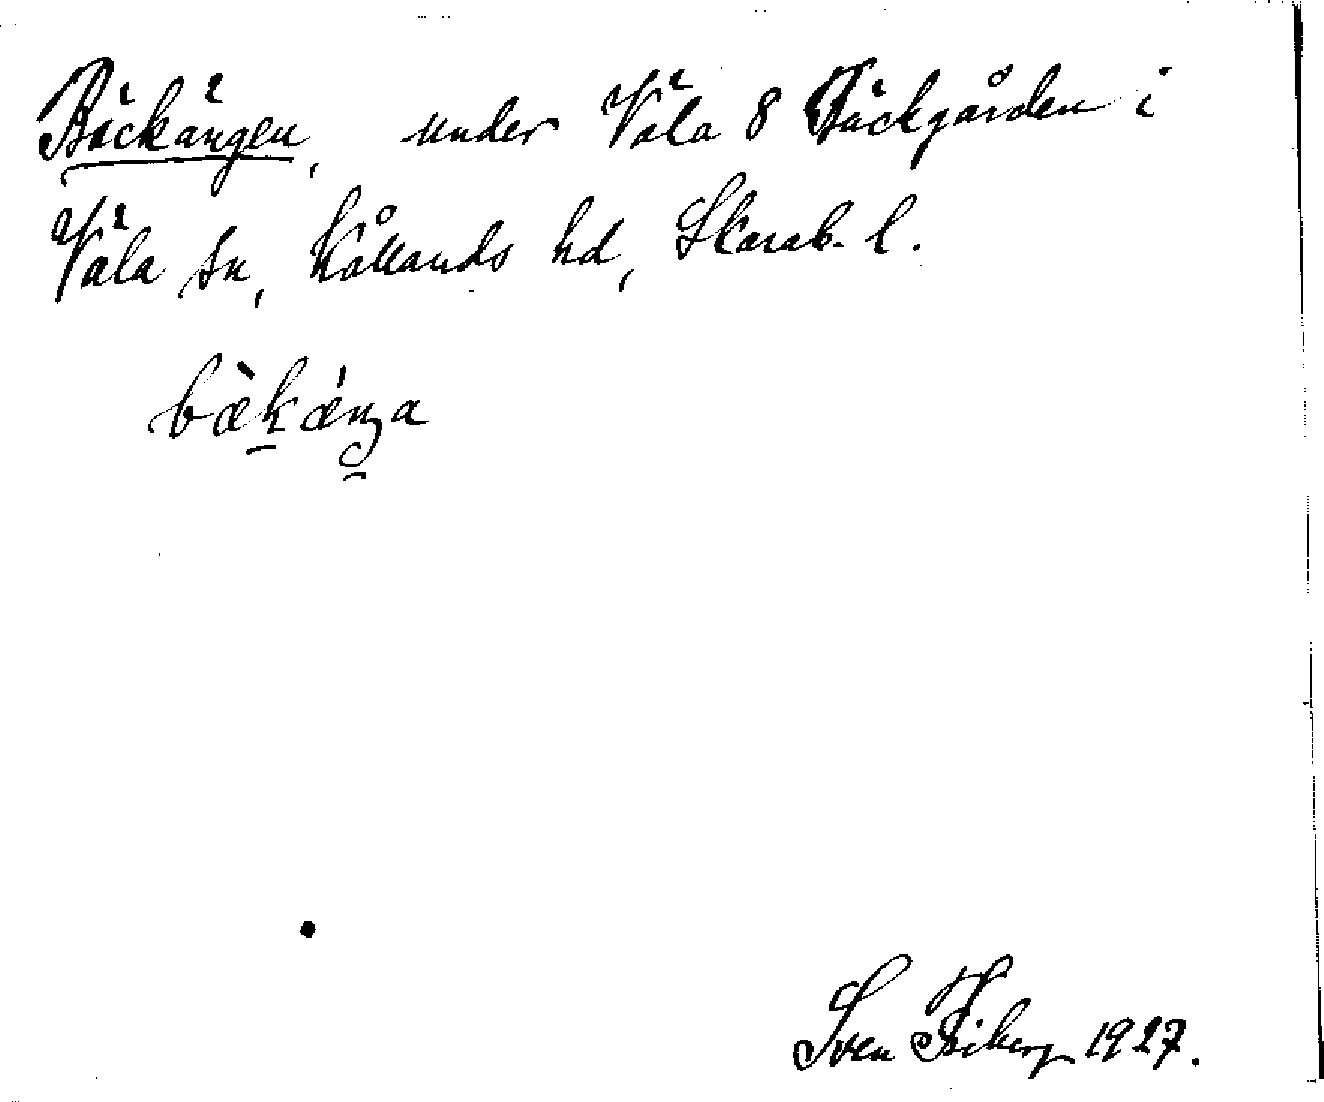 Bäckängen, under Väla 8 Bäckgården i
Väla sn, Kållands hd, Skarab. l.
bæ̀kǽnga
Sven Friberg 1927.